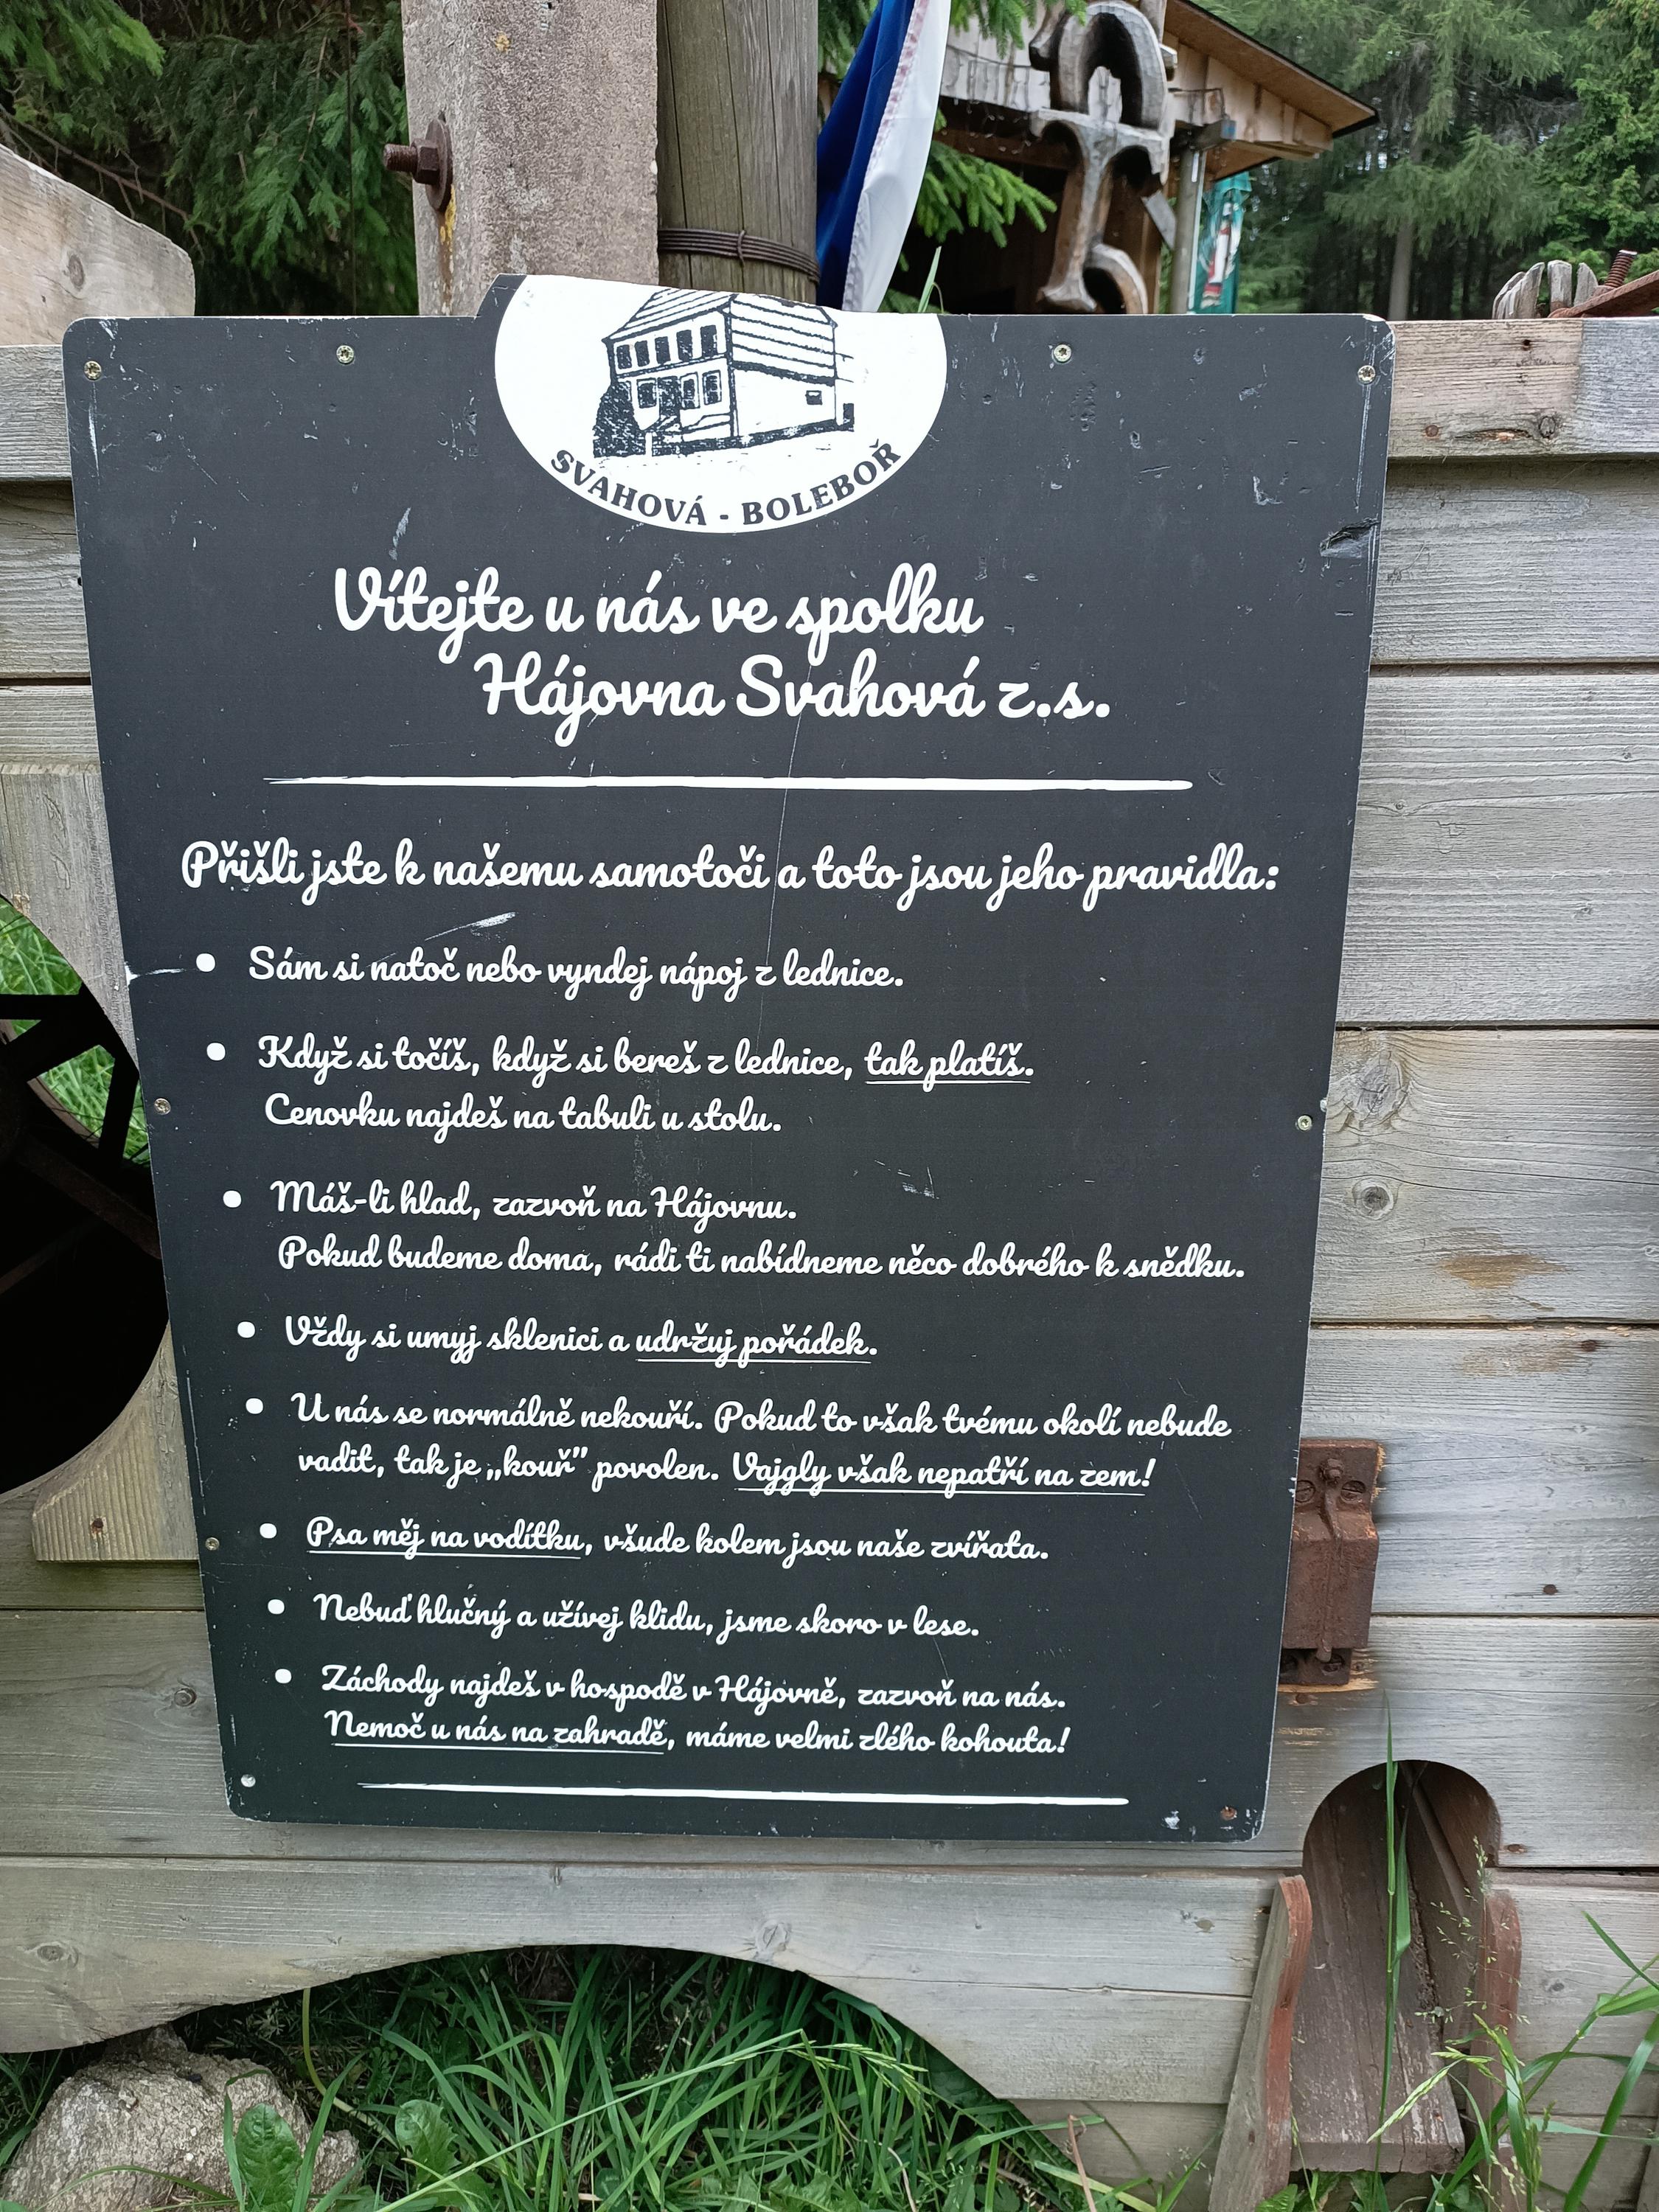 SVAHOVÁ - BOLEBOŘ
Vítejte u nás ve spolku
Hájovna Svahová z.s.
Přišli jste k našemu samotoči a toto jsou jeho pravidla:
• Sám si natoč nebo vyndej nápoj z lednice.
• Když si točíš, když si bereš z lednice, tak platíš.
Cenovku najdeš na tabuli u stolu.
• Máš-li hlad, zazvoň na Hájovnu.
Pokud budeme doma, rádi ti nabídneme něco dobrého k snědku.
• Vždy si umyj sklenici a udržuj pořádek.
• U nás se normálně nekouří. Pokud to však tvému okolí nebude
vadit, tak je „kouř” povolen. Vajgly však nepatří na zem!
• Psa měj na vodítku, všude kolem jsou naše zvířata.
• Nebuď hlučný a užívej klidu, jsme skoro v lese.
• Záchody najdeš v hospodě v Hájovně, zazvoň na nás.
Nemoč u nás na zahradě, máme velmi zlého kohouta!